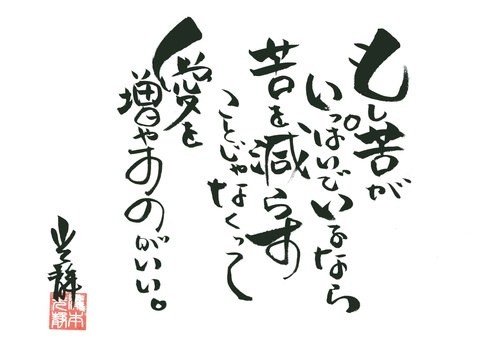 もし苦が
いっぱいでいるなら
苦を減らす
ことじゃなくって
愛を
増やすのがいい。